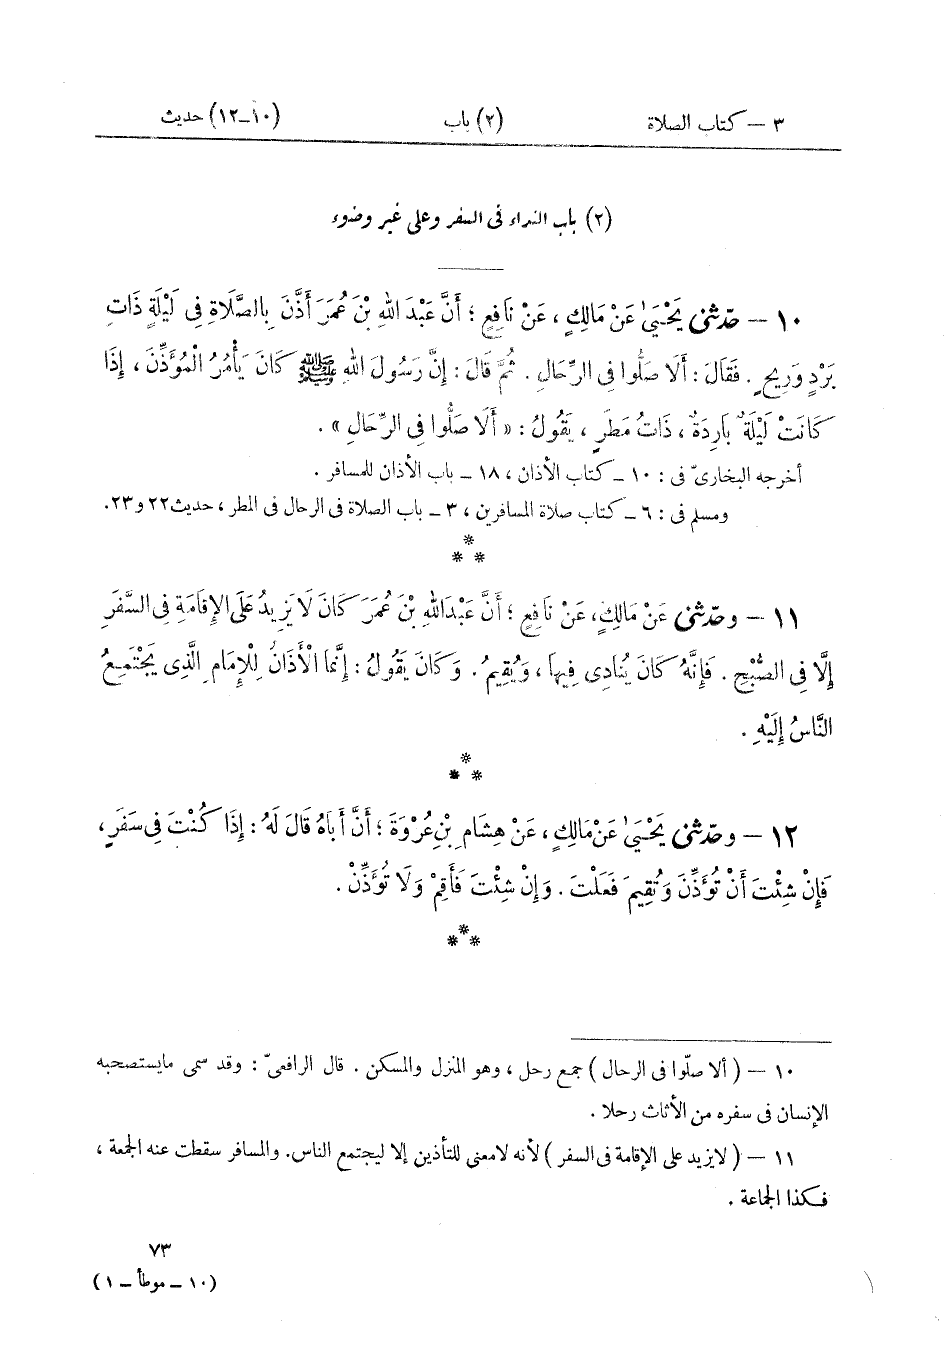 ٣ – كتاب الصلاة (٢) باب (١٠–١٢) حديث
(٢) باب النداء فى السفر وعلى غير وضوء
١٠ – حدّثنى يَحْيَىٰ عَنْ مَالِكٍ ، عَنْ نَافِعٍ ؛ أَنَّ عَبْدَ اللهِ بْنَ عُمَرَ أَذَّنَ بِالصَّلَاةِ فِى لَيْلَةٍ ذَاتِ
بَرْدٍ وَرِيحٍ . فَقَالَ : أَلَا صَلُّوا فِى الرِّحَالِ . ثُمَّ قَالَ : إِنَّ رَسُولَ اللهِ ﷺ كَانَ يَأْمُرُ الْمُؤَذِّنَ ، إِذَا
كَانَتْ لَيْلَةٌ بَارِدَةٌ ، ذَاتُ مَطَرٍ ، يَقُولُ : « أَلَا صَلُّوا فِى الرِّحَالِ » .
أخرجه البخارىّ فى : ١٠ – كتاب الأذان ، ١٨ – باب الأذان للمسافر .
ومسلم فى : ٦ – كتاب صلاة المسافرين ، ٣ – باب الصلاة فى الرحال فى المطر ، حديث ٢٢ و٢٣.
*
* *
١١ – وحدّثنى عَنْ مَالِكٍ، عَنْ نَافِعٍ ؛ أَنَّ عَبْدَ اللهِ بْنَ عُمَرَ كَانَ لَا يَزِيدُ عَلَى الْإِقَامَةِ فِى السَّفَرِ
إِلَّا فِى الصُّبْحِ . فَإِنَّهُ كَانَ يُنَادِى فِيهَا ، وَيُقِيمُ . وَكَانَ يَقُولُ : إِنَّمَا الْأَذَانُ لِلْإِمَامِ الَّذِى يَجْتَمِعُ
النَّاسُ إِلَيْهِ .
*
* *
١٢ – وحدّثنى يَحْيَىٰ عَنْ مَالِكٍ ، عَنْ هِشَامِ بْنِ عُرْوَةَ ؛ أَنَّ أَبَاهُ قَالَ لَهُ : إِذَا كُنْتَ فِى سَفَرٍ ،
فَإِنْ شِئْتَ أَنْ تُؤَذِّنَ وَتُقِيمَ فَعَلْتَ . وَإِنْ شِئْتَ فَأَقِمْ وَلَا تُؤَذِّنْ .
*
* *
١٠ – ( ألا صلّوا فى الرحال ) جمع رحل ، وهو المنزل والمسكن . قال الرافعىّ : وقد سمى مايستصحبه
الإنسان فى سفره من الأثاث رحلا .
١١ – ( لايزيد على الإقامة فى السفر ) لأنه لامعنى للتأذين إلا ليجتمع الناس. والمسافر سقطت عنه الجمعة ،
فكذا الجماعة .
٧٣
(١٠ – موطأ – ١)